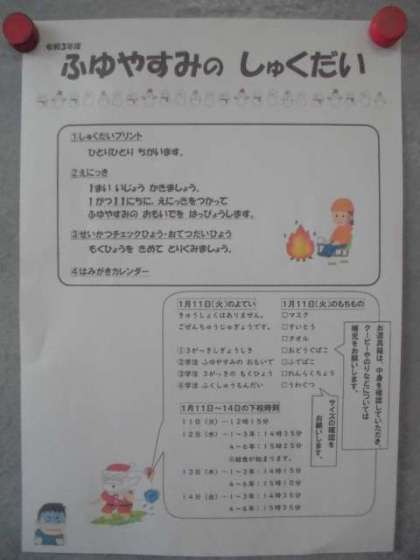 令和3年度
ふゆやすみの しゅくだい
1 しゅくだいプリント
ひとりひとり ちがいます。
2 えにっき
1まい いじょう かきましょう。
1がつ11にちに、えにっきをつかって
ふゆやすみの おもいでを はっぴょうします。
3 せいかつチェックひょう・おてつだいひょう
もくひょうを きめて とりくみましょう。
4 はみがきカレンダー
1月11日(火)のよてい
きゅうしょくはありません。
ごぜんちゅうじゅぎょうです。
①3がっきしぎょうしき
②学活 ふゆやすみの おもいで
③学活 3がっきの もくひょう
④学活 ふくしゅうもんだい
1月11日(火)のもちもの
□マスク
□すいとう
□タオル
□おどうぐばこ
□ふでばこ
□れんらくちょう
□うわぐつ
お道具箱は、中身を確認していただき、
クーピーやのりなどについては
補充をお願いします。
サイズの確認を
お願いします。
1月11日~14日の下校時刻
11日(火)-12時15分
12日(水)-1~3年:14時35分
4~6年:15時25分
※給食が始まります。
13日(木)-1~3年:14時15分
4~6年:15時10分
14日(金)-1~3年:14時35分
4~6年:15時35分